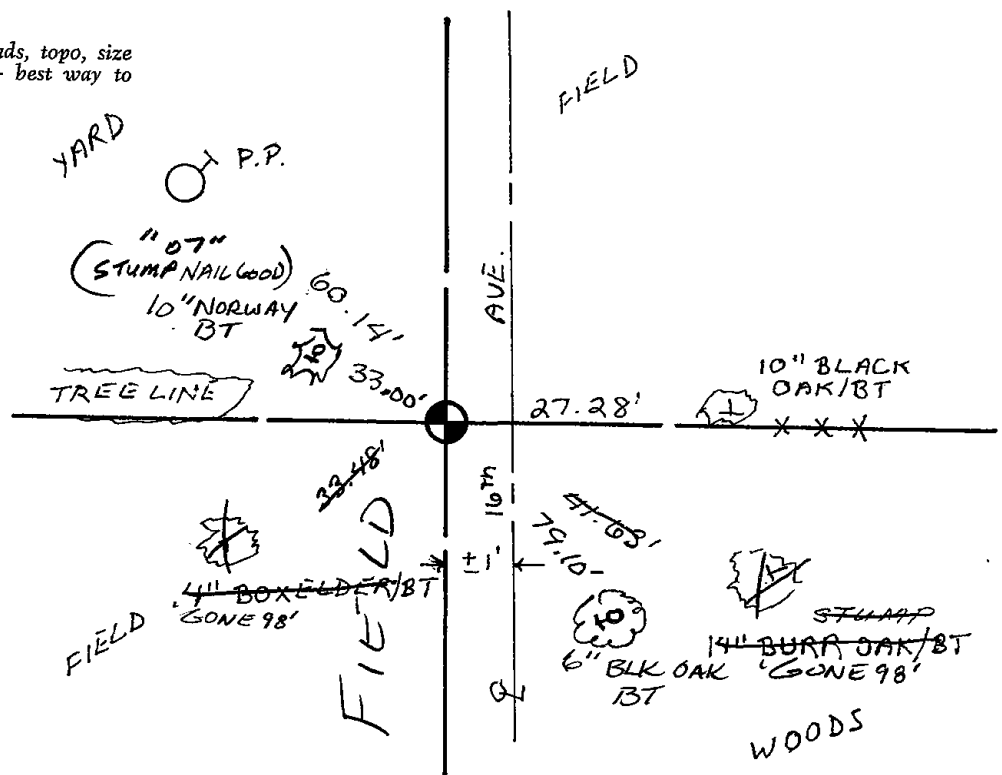 ads, topo, size
- best way to
FIELD
YARD
P.P.
"07"
(STUMP NAIL GOOD)
10" NORWAY
BT
60.14'
33.00'
TREE LINE
AVE.
16th
27.28'
10" BLACK
OAK/BT
33.48'
41.63'
79.10
±1'
4" BOXELDER/BT
'GONE 98'
FIELD
FIELD
6" BLK OAK
BT
STUMP
14" BURR OAK/BT
'GONE 98'
WOODS